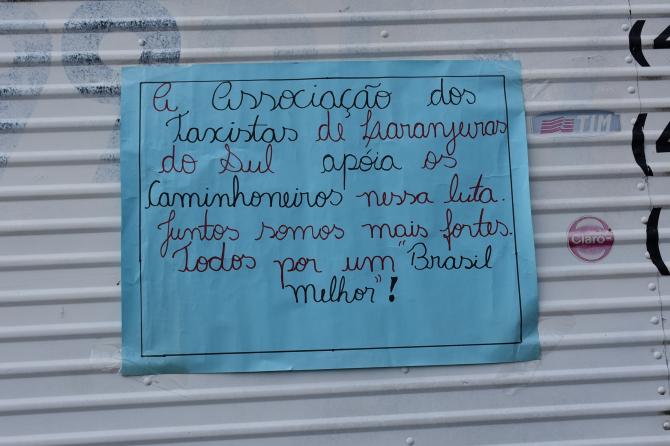 A Associação dos
Taxistas de Laranjeiras
do Sul apóia os
Caminhoneiros nessa luta.
Juntos somos mais fortes.
Todos por um "Brasil
melhor"!
TIM
Claro
(4
(4
(